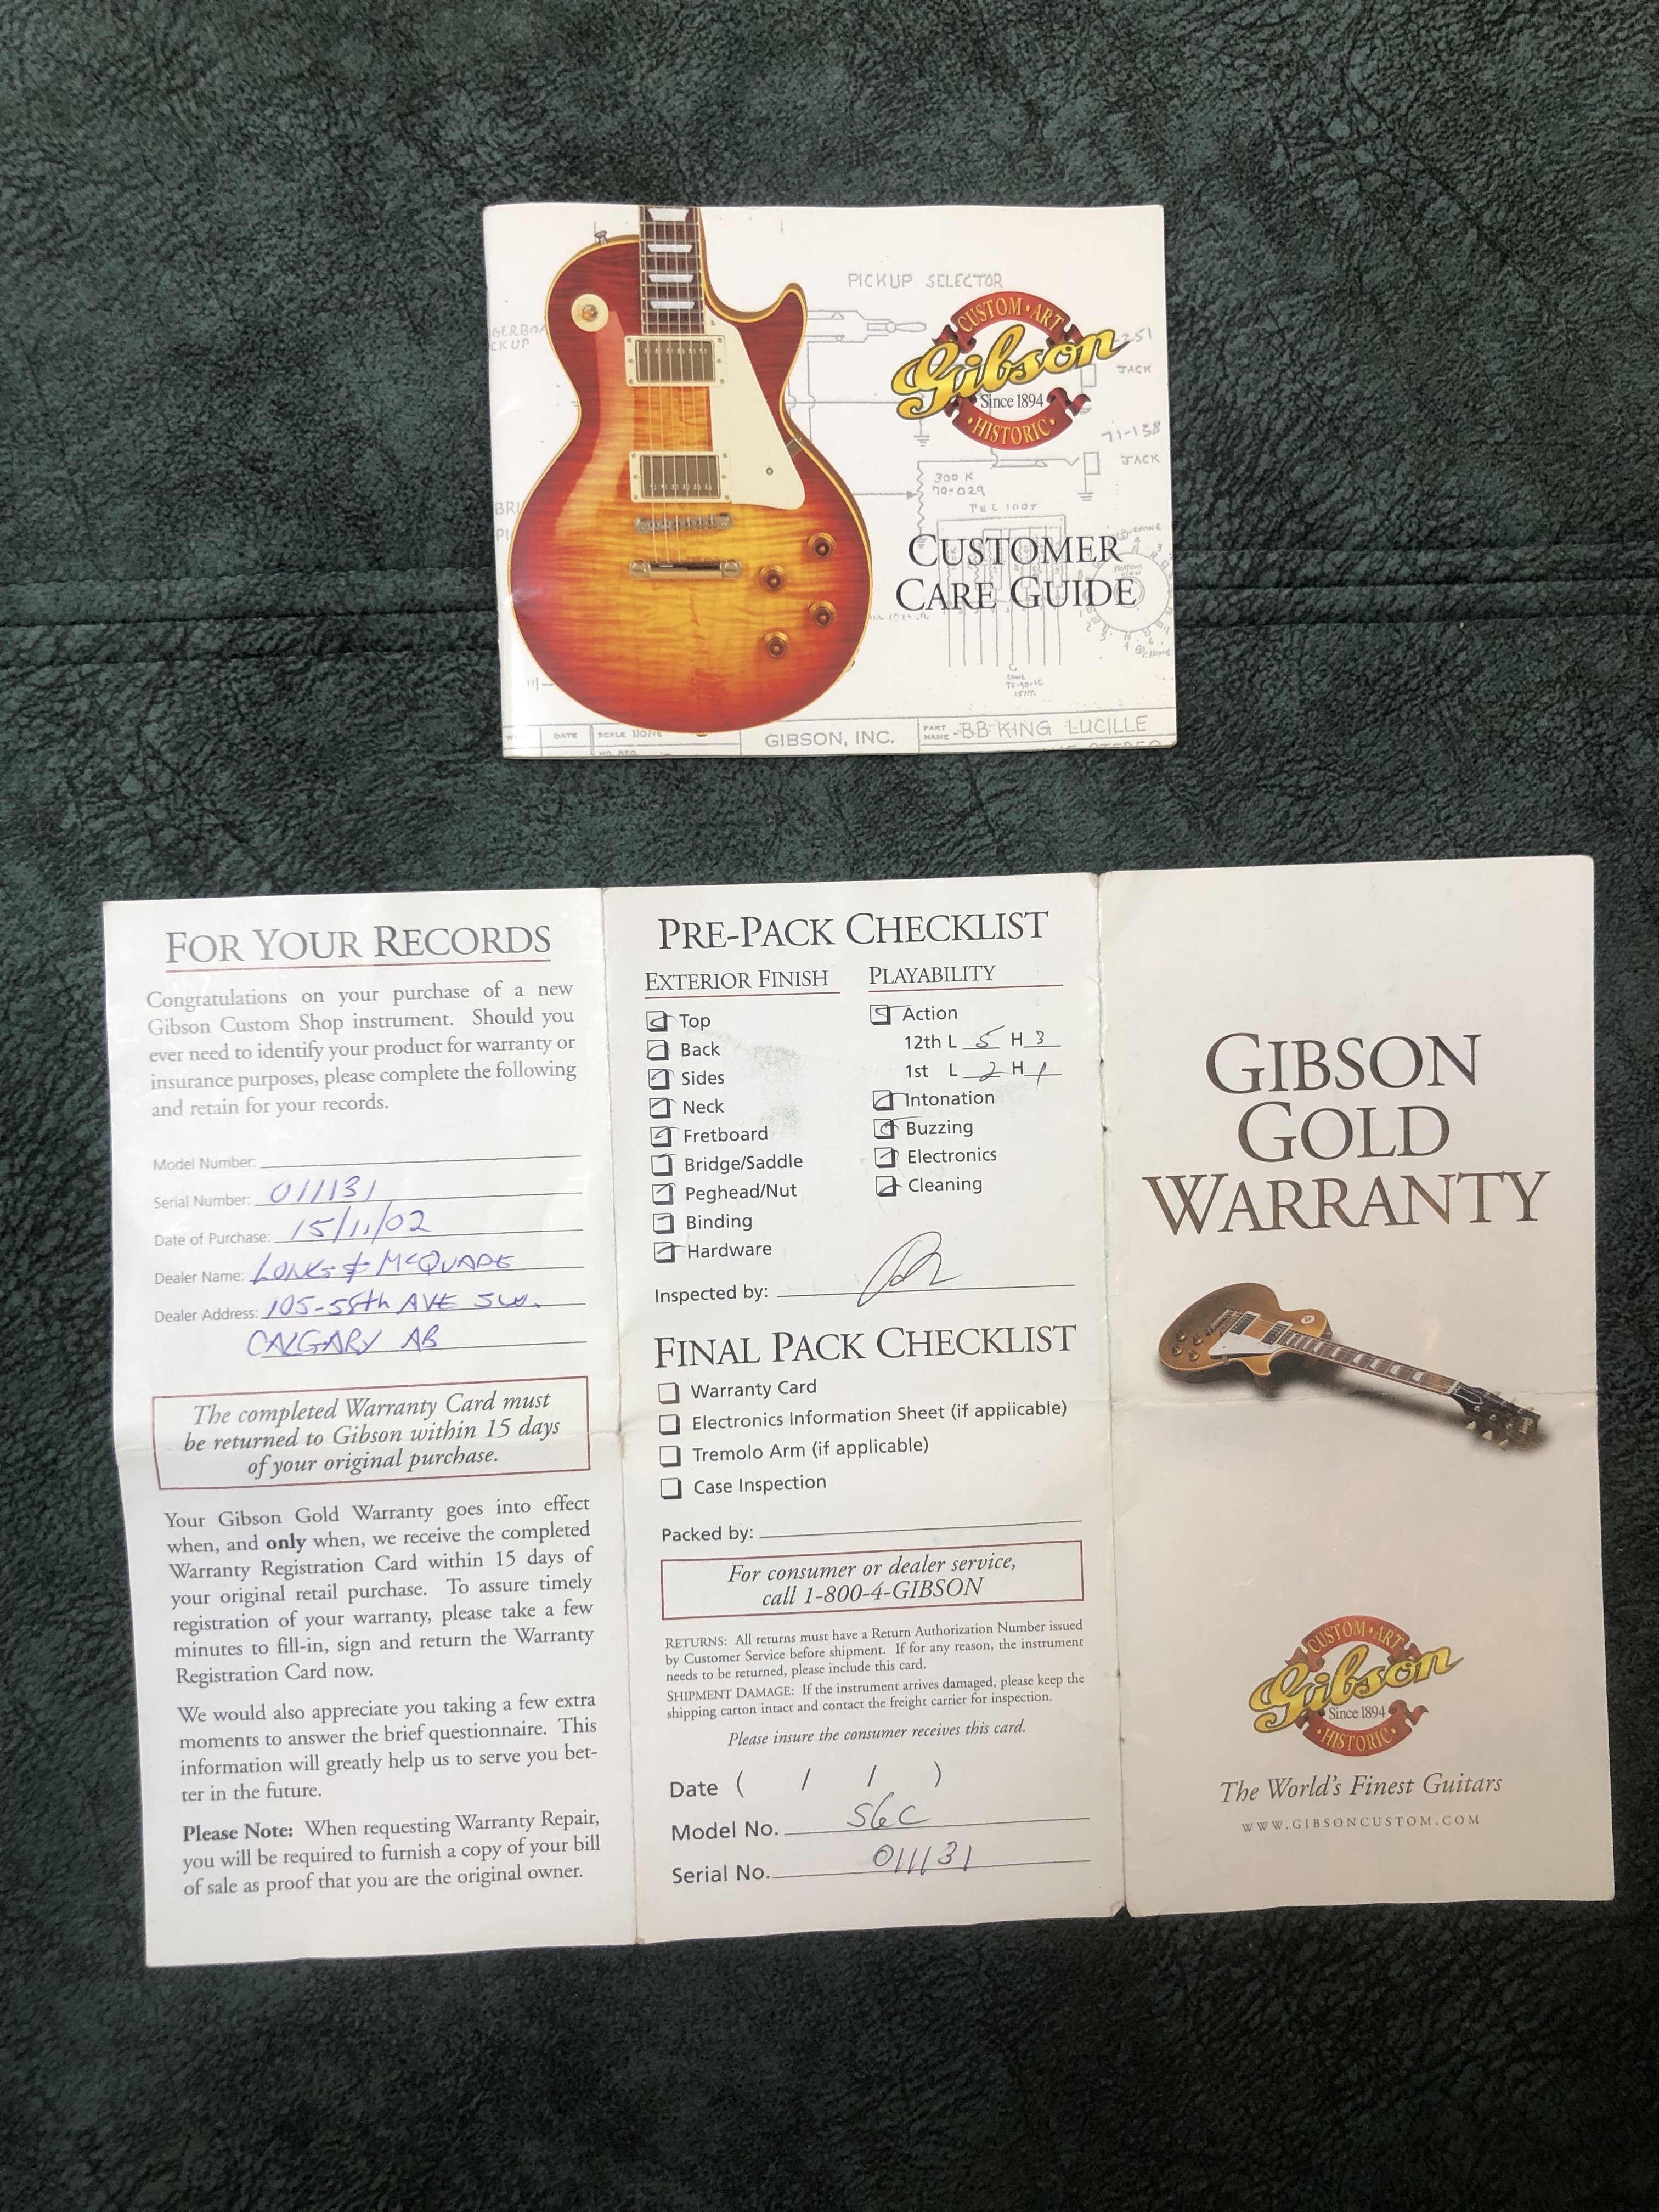 PICKUP SELECTOR
CUSTOM • ART
Gibson
Since 1894
• HISTORIC •
JACK
71-138
JACK
300 K
70-029
TEC 1007
CUSTOMER
CARE GUIDE
DATE
SCALE NONE
GIBSON, INC.
PART NAME - BB KING LUCILLE
FOR YOUR RECORDS
Congratulations on your purchase of a new
Gibson Custom Shop instrument. Should you
ever need to identify your product for warranty or
insurance purposes, please complete the following
and retain for your records.
Model Number:
Serial Number: 011131
Date of Purchase: 15/11/02
Dealer Name: LONG & McQUADE
Dealer Address: 105-58th AVE SW.
CALGARY AB
The completed Warranty Card must
be returned to Gibson within 15 days
of your original purchase.
Your Gibson Gold Warranty goes into effect
when, and only when, we receive the completed
Warranty Registration Card within 15 days of
your original retail purchase. To assure timely
registration of your warranty, please take a few
minutes to fill-in, sign and return the Warranty
Registration Card now.
We would also appreciate you taking a few extra
moments to answer the brief questionnaire. This
information will greatly help us to serve you bet-
ter in the future.
Please Note: When requesting Warranty Repair,
you will be required to furnish a copy of your bill
of sale as proof that you are the original owner.
PRE-PACK CHECKLIST
EXTERIOR FINISH
Top
Back
Sides
Neck
Fretboard
Bridge/Saddle
Peghead/Nut
Binding
Hardware
PLAYABILITY
Action
12th L 5 H 3
1st L 2 H 1
Intonation
Buzzing
Electronics
Cleaning
Inspected by:
FINAL PACK CHECKLIST
Warranty Card
Electronics Information Sheet (if applicable)
Tremolo Arm (if applicable)
Case Inspection
Packed by:
For consumer or dealer service,
call 1-800-4-GIBSON
RETURNS: All returns must have a Return Authorization Number issued
by Customer Service before shipment. If for any reason, the instrument
needs to be returned, please include this card.
SHIPMENT DAMAGE: If the instrument arrives damaged, please keep the
shipping carton intact and contact the freight carrier for inspection.
Please insure the consumer receives this card.
Date ( / / )
Model No. SGC
Serial No. 011131
GIBSON
GOLD
WARRANTY
CUSTOM • ART
Gibson
Since 1894
• HISTORIC •
The World's Finest Guitars
WWW.GIBSONCUSTOM.COM